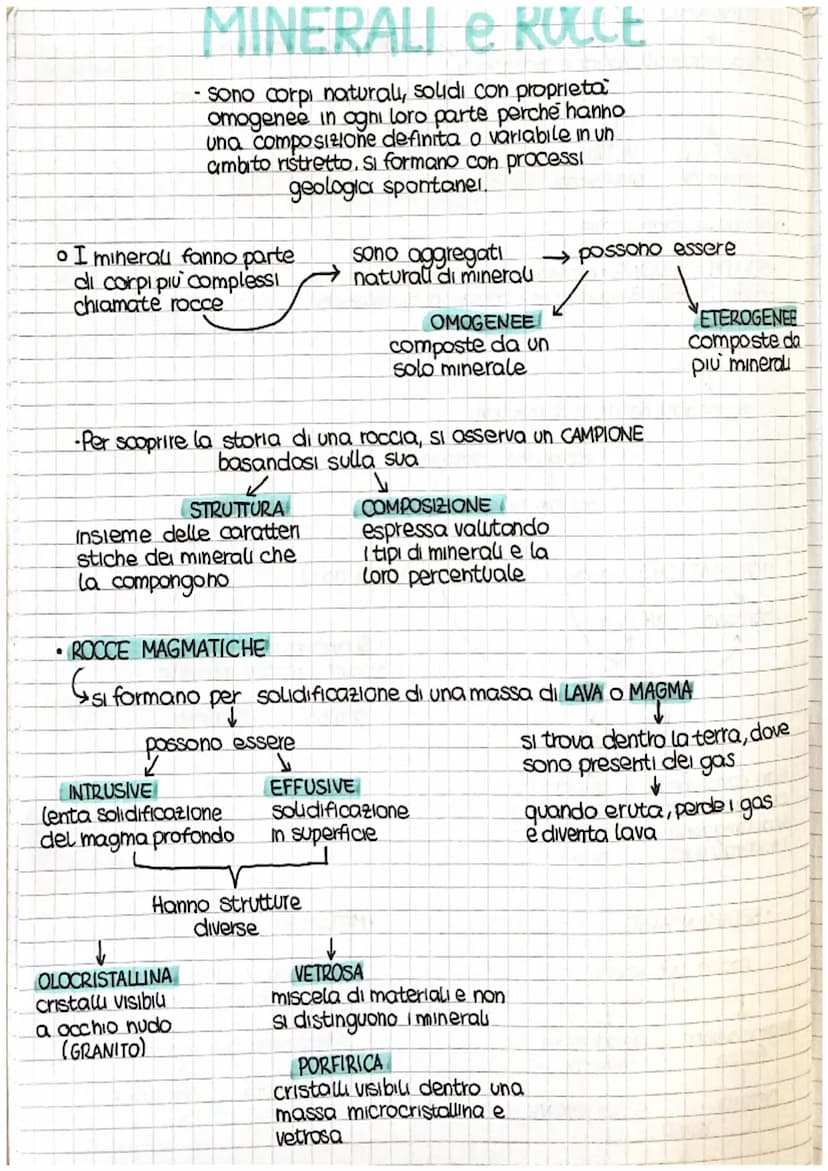 MINERALI e ROCCE
- sono corpi naturali, solidi con proprietà
omogenee in ogni loro parte perché hanno
una composizione definita o variabile in un
ambito ristretto. Si formano con processi
geologici spontanei.
I minerali fanno parte
di corpi più complessi
chiamate rocce
sono aggregati
naturali di minerali
→ possono essere
OMOGENEE
composte da un
solo minerale
ETEROGENEE
composte da
più minerali
·Per scoprire la storia di una roccia, si osserva un CAMPIONE
basandosi sulla sua
STRUTTURA
insieme delle caratteri
stiche dei minerali che
la compongono
COMPOSIZIONE
espressa valutando
i tipi di minerali e la
loro percentuale
• ROCCE MAGMATICHE
si formano per solidificazione di una massa di LAVA o MAGMA
possono essere
INTRUSIVE
lenta solidificazione
del magma profondo
EFFUSIVE
solidificazione
in superficie
si trova dentro la terra, dove
sono presenti dei gas
quando eruta, perde i gas
e diventa lava
Hanno strutture
diverse
OLOCRISTALLINA
cristalli visibili
a occhio nudo
(GRANITO)
VETROSA
miscela di materiali e non
si distinguono i minerali
PORFIRICA
cristalli visibili dentro una
massa microcristallina e
vetrosa